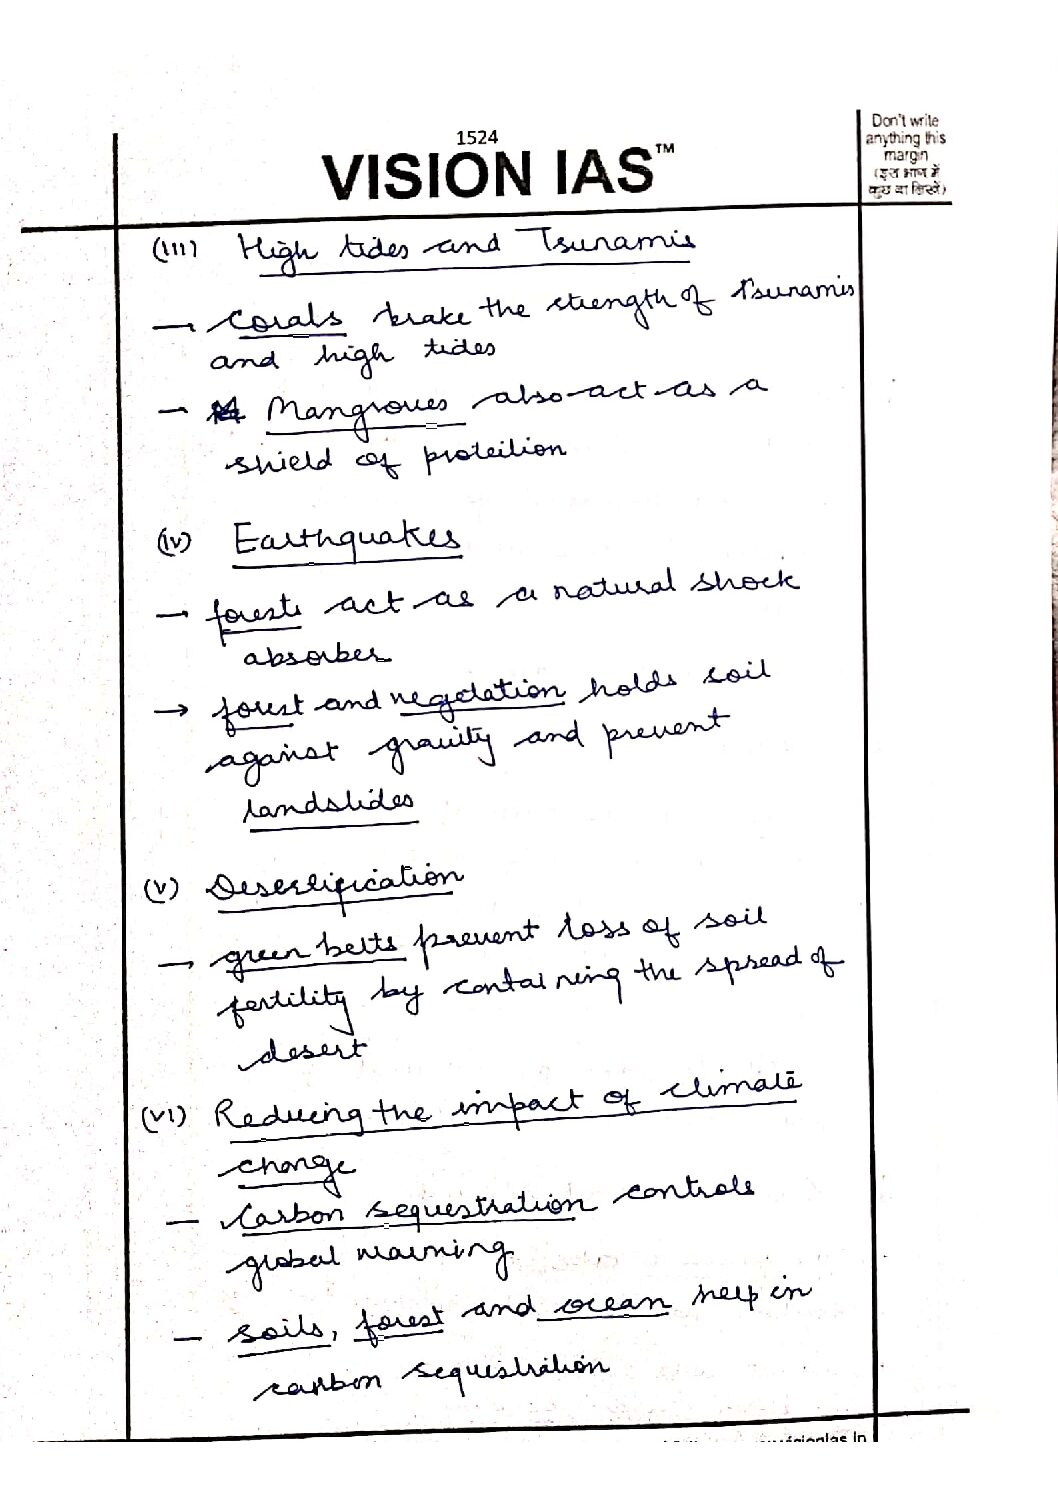 1524
VISION IAS™
Don't write
anything this
margin
(इस भाग में
कुछ ना लिखें)
(iii) High tides and Tsunamis
→ Corals brake the strength of Tsunamis
and high tides
– Mangroves also act as a
shield of protection
(iv) Earthquakes
→ forests act as a natural shock
absorber
→ forest and vegetation holds soil
against gravity and prevent
landslides
(v) Desertification
→ green belts prevent loss of soil
fertility by containing the spread of
desert
(vi) Reducing the impact of climate
change
– Carbon sequestration controls
global warming
– soils, forest and ocean help in
carbon sequestration